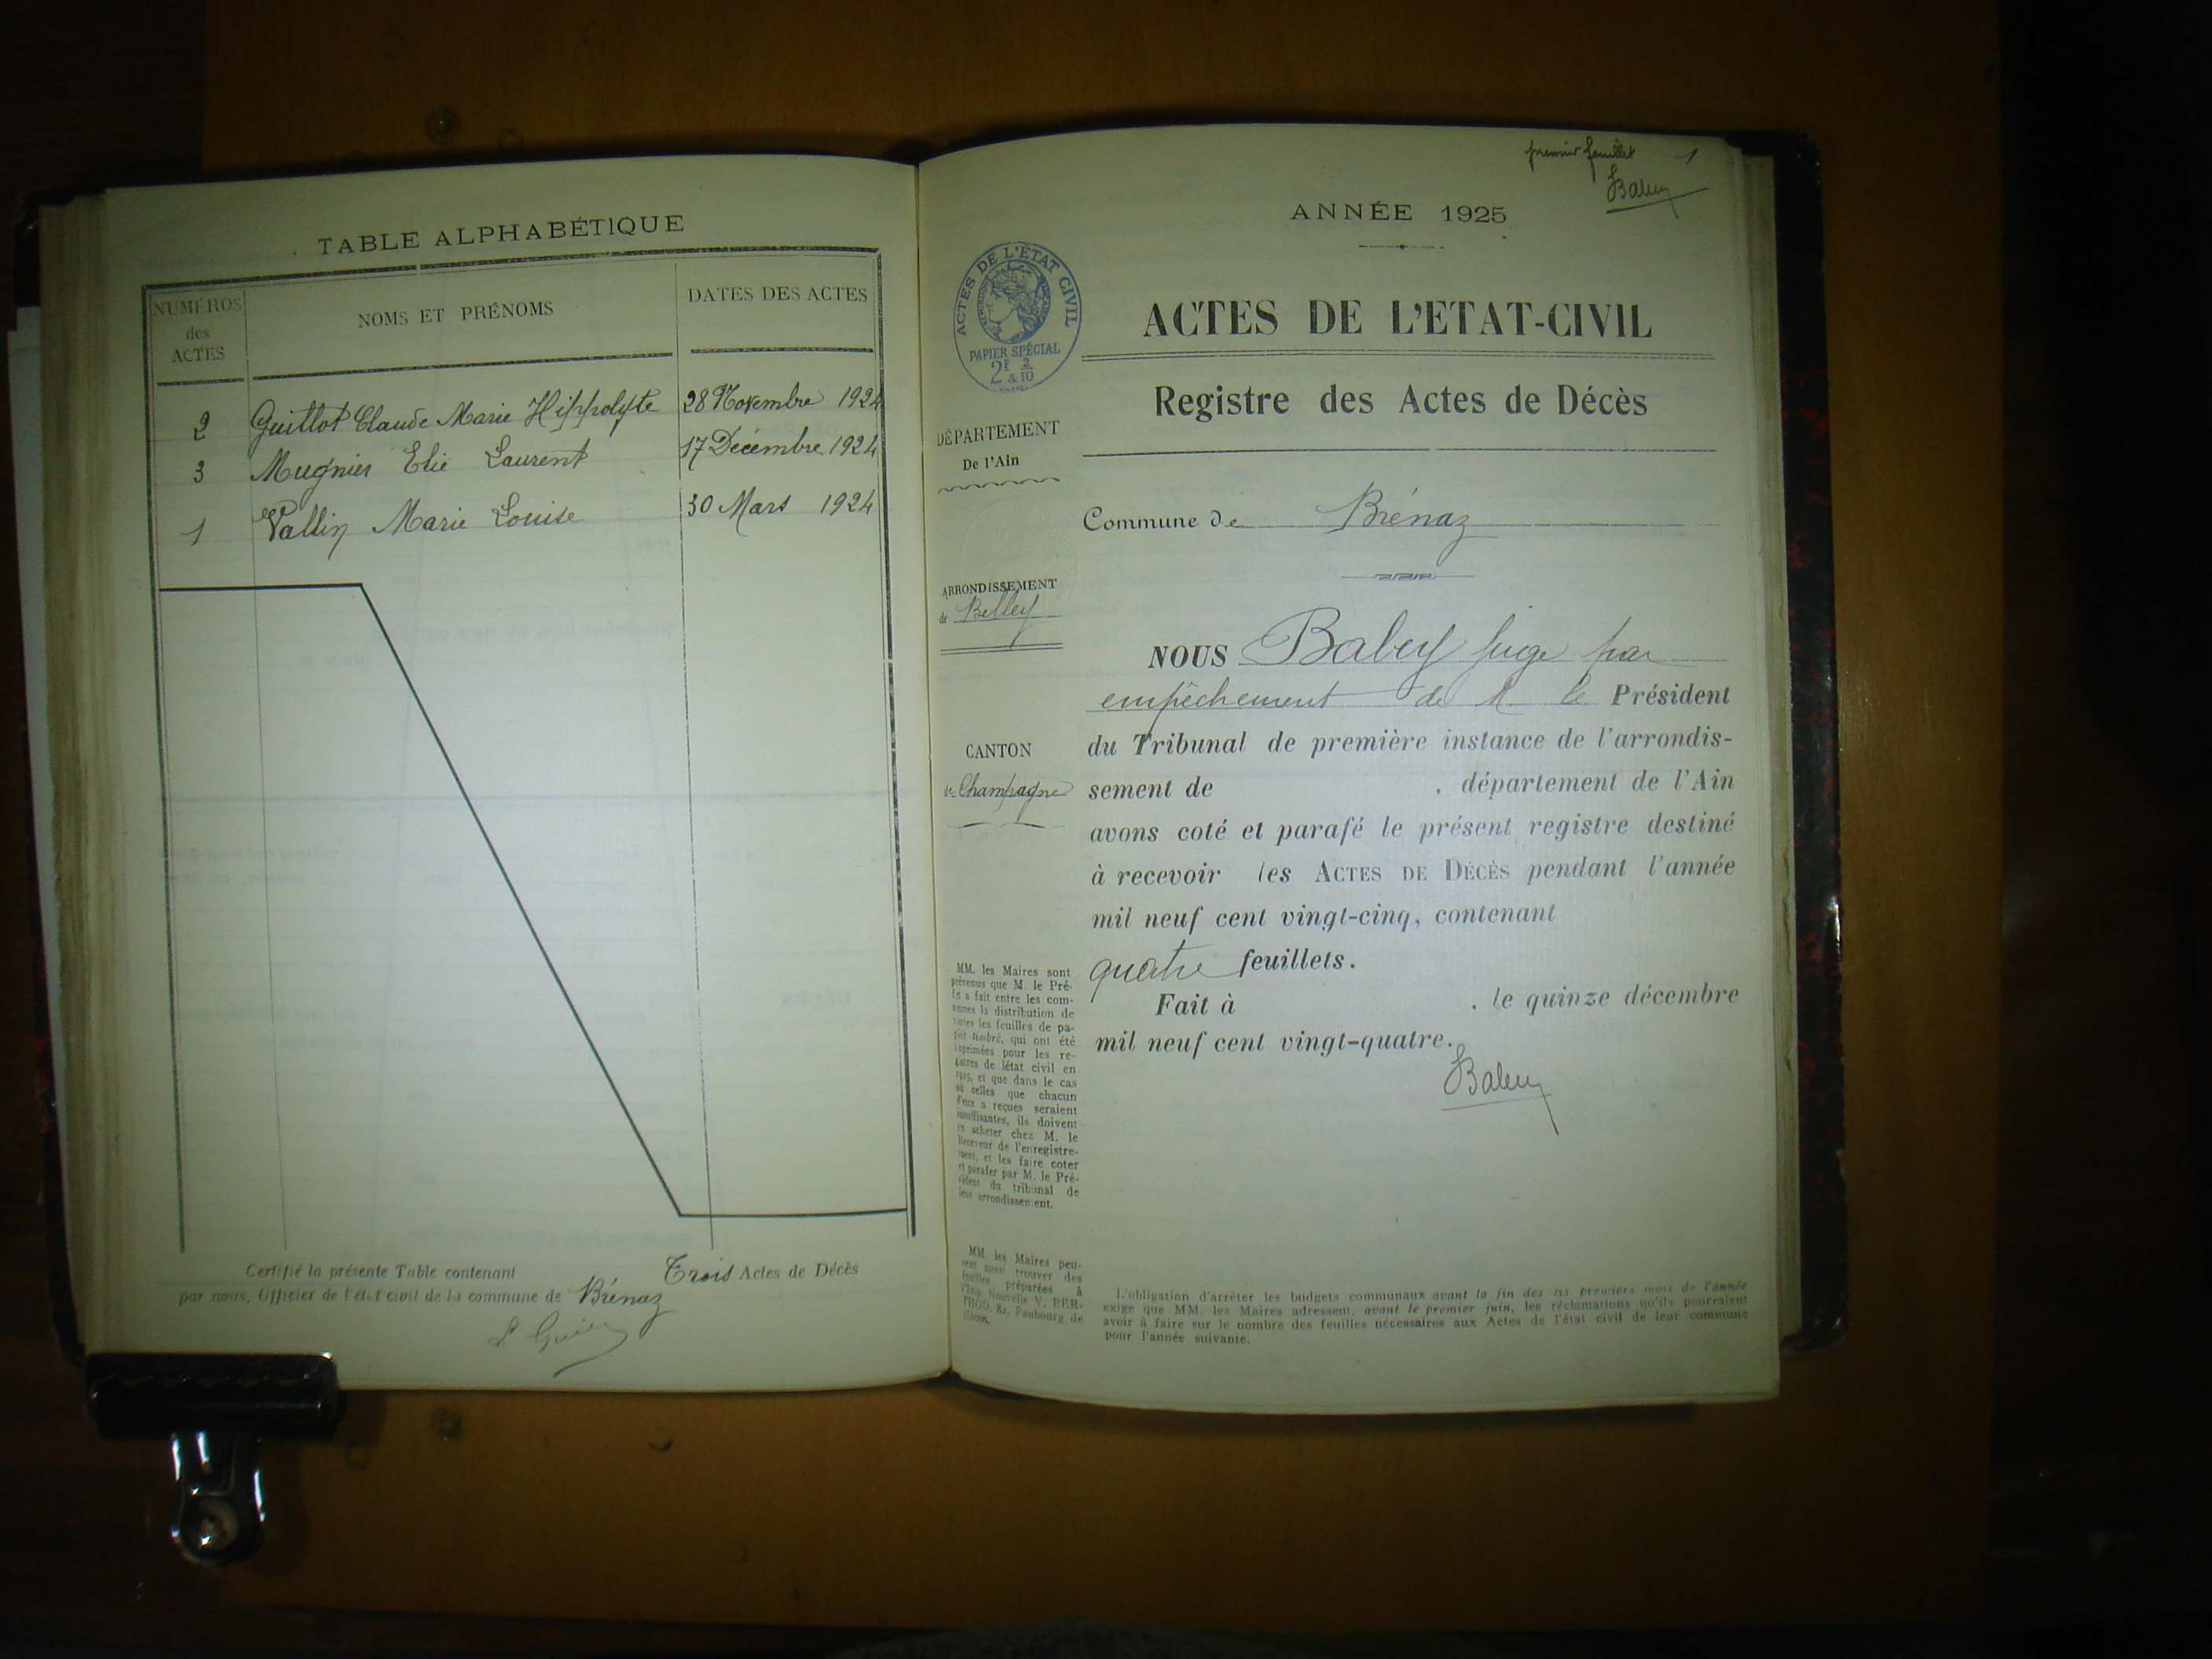 TABLE ALPHABÉTIQUE
NUMÉROS
des
ACTES
NOMS ET PRÉNOMS
DATES DES ACTES
2 Guillot Claude Marie Hippolyte 28 Novembre 1924
3 Mugnier Elie Laurent 17 Décembre 1924
1 Vallin Marie Louise 30 Mars 1924
Certifié la présente Table contenant Trois Actes de Décès
par nous, Officier de l'état civil de la commune de Brénaz
premier feuillet 1
ANNÉE 1925
ACTES DE L'ÉTAT CIVIL
PAPIER SPÉCIAL
2F 2
& 10
ACTES DE L'ETAT-CIVIL
Registre des Actes de Décès
DÉPARTEMENT
De l'Ain
Commune de Brénaz
ARRONDISSEMENT
de Belley
CANTON
de Champagne
NOUS Babey juge par
empêchement de M. le Président
du Tribunal de première instance de l'arrondis-
sement de . département de l'Ain
avons coté et parafé le présent registre destiné
à recevoir les ACTES DE DÉCÈS pendant l'année
mil neuf cent vingt-cinq, contenant
quatre feuillets.
Fait à . le quinze décembre
mil neuf cent vingt-quatre.
Babey
MM. les Maires sont
prévenus que M. le Pré-
fet a fait entre les com-
munes la distribution de
toutes les feuilles de pa-
pier timbré, qui ont été
imprimées pour les re-
gistres de létat civil en
1925, et que dans le cas
où celles que chacun
d'eux a reçues seraient
insuffisantes, ils doivent
en acheter chez M. le
Receveur de l'enregistre-
ment, et les faire coter
et parafer par M. le Pré-
sident du tribunal de
leur arrondissement.
MM. les Maires peu-
vent aussi trouver des
feuilles préparées à
l'Imp. Nouvelle V. BER-
THOD, 82, Faubourg de
Mâcon.
L'obligation d'arrêter les budgets communaux avant la fin des six premiers mois de l'année
exige que MM. les Maires adressent, avant le premier juin, les réclamations qu'ils pourraient
avoir à faire sur le nombre des feuilles nécessaires aux Actes de l'état civil de leur commune
pour l'année suivante.